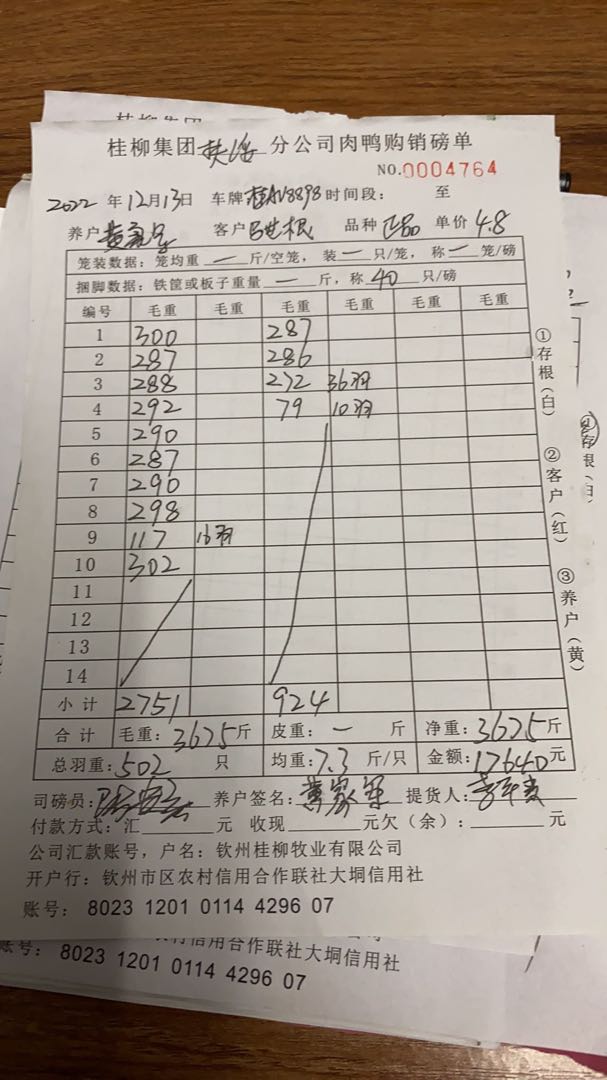 桂柳集团
桂柳集团 分公司肉鸭购销磅单
NO.0004764
2022年12月13日 车牌桂AV8898时间段： 至
养户 客户 品种正品 单价4.8
笼装数据：笼均重 一 斤/空笼，装 一 只/笼，称 一 笼/磅
捆脚数据：铁筐或板子重量 一 斤，称 40 只/磅
编号 毛重 毛重 毛重 毛重 毛重 毛重
1 300 287
2 287 286
3 288 272 36羽
4 292 79 10羽
5 290
6 287
7 290
8 298
9 117 16羽
10 302
11
12
13
14
小计 2751 924
合计 毛重：3675斤 皮重：一 斤 净重：3675斤
总羽重：502 只 均重：7.3 斤/只 金额：17640元
司磅员： 养户签名： 提货人：
付款方式：汇 元 收现 元欠（余）： 元
公司汇款账号，户名：钦州桂柳牧业有限公司
开户行：钦州市区农村信用合作联社大垌信用社
账号： 8023 1201 0114 4296 07
①存根（白）
②客户（红）
③养户（黄）
村信用合作联社大垌信用社
账号： 8023 1201 0114 4296 07